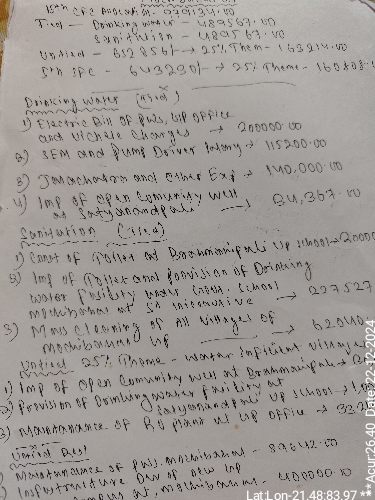 15th CFC Allocation - 979134.00
Tied - Drinking water - 489567.00
Sanitation - 489567.00
Untied - 652856/- → 25% Them - 163214.00
5th SFC - 643230/- → 25% Theme -
Drinking Water (Tied)
1) Electric Bill of PWS, GP office
and Vichele Charges → 200000.00
2) SEM and Pump Driver Salary → 115200.00
3) and other Exp → 140,000.00
4) Imp of open Community well
at Satyanandpali → 34,367.00
Sanitation (Tied)
1) Const of Toilet at Brahmanipali UP School →
2) Imp of Toilet and Provision of Drinking
water facility under School
at → 227527
3) Mass Cleaning of All Villages of
GP → 62040
Untied 25% Theme - Water Sufficient Village
1) Imp of open Community well at Brahmanipali →
2) Provision of Drinking water facility at
Satyanandpali UP School →
3) Maintanance of RO Plant at GP office →
Untied Rest
Maintanance of PWS - 89642.00
Infrastructure Dev of new GP
at - 400000.00
Lat Lon-21.48:83.97 ** Acur:26.40 Date:12-12-2024